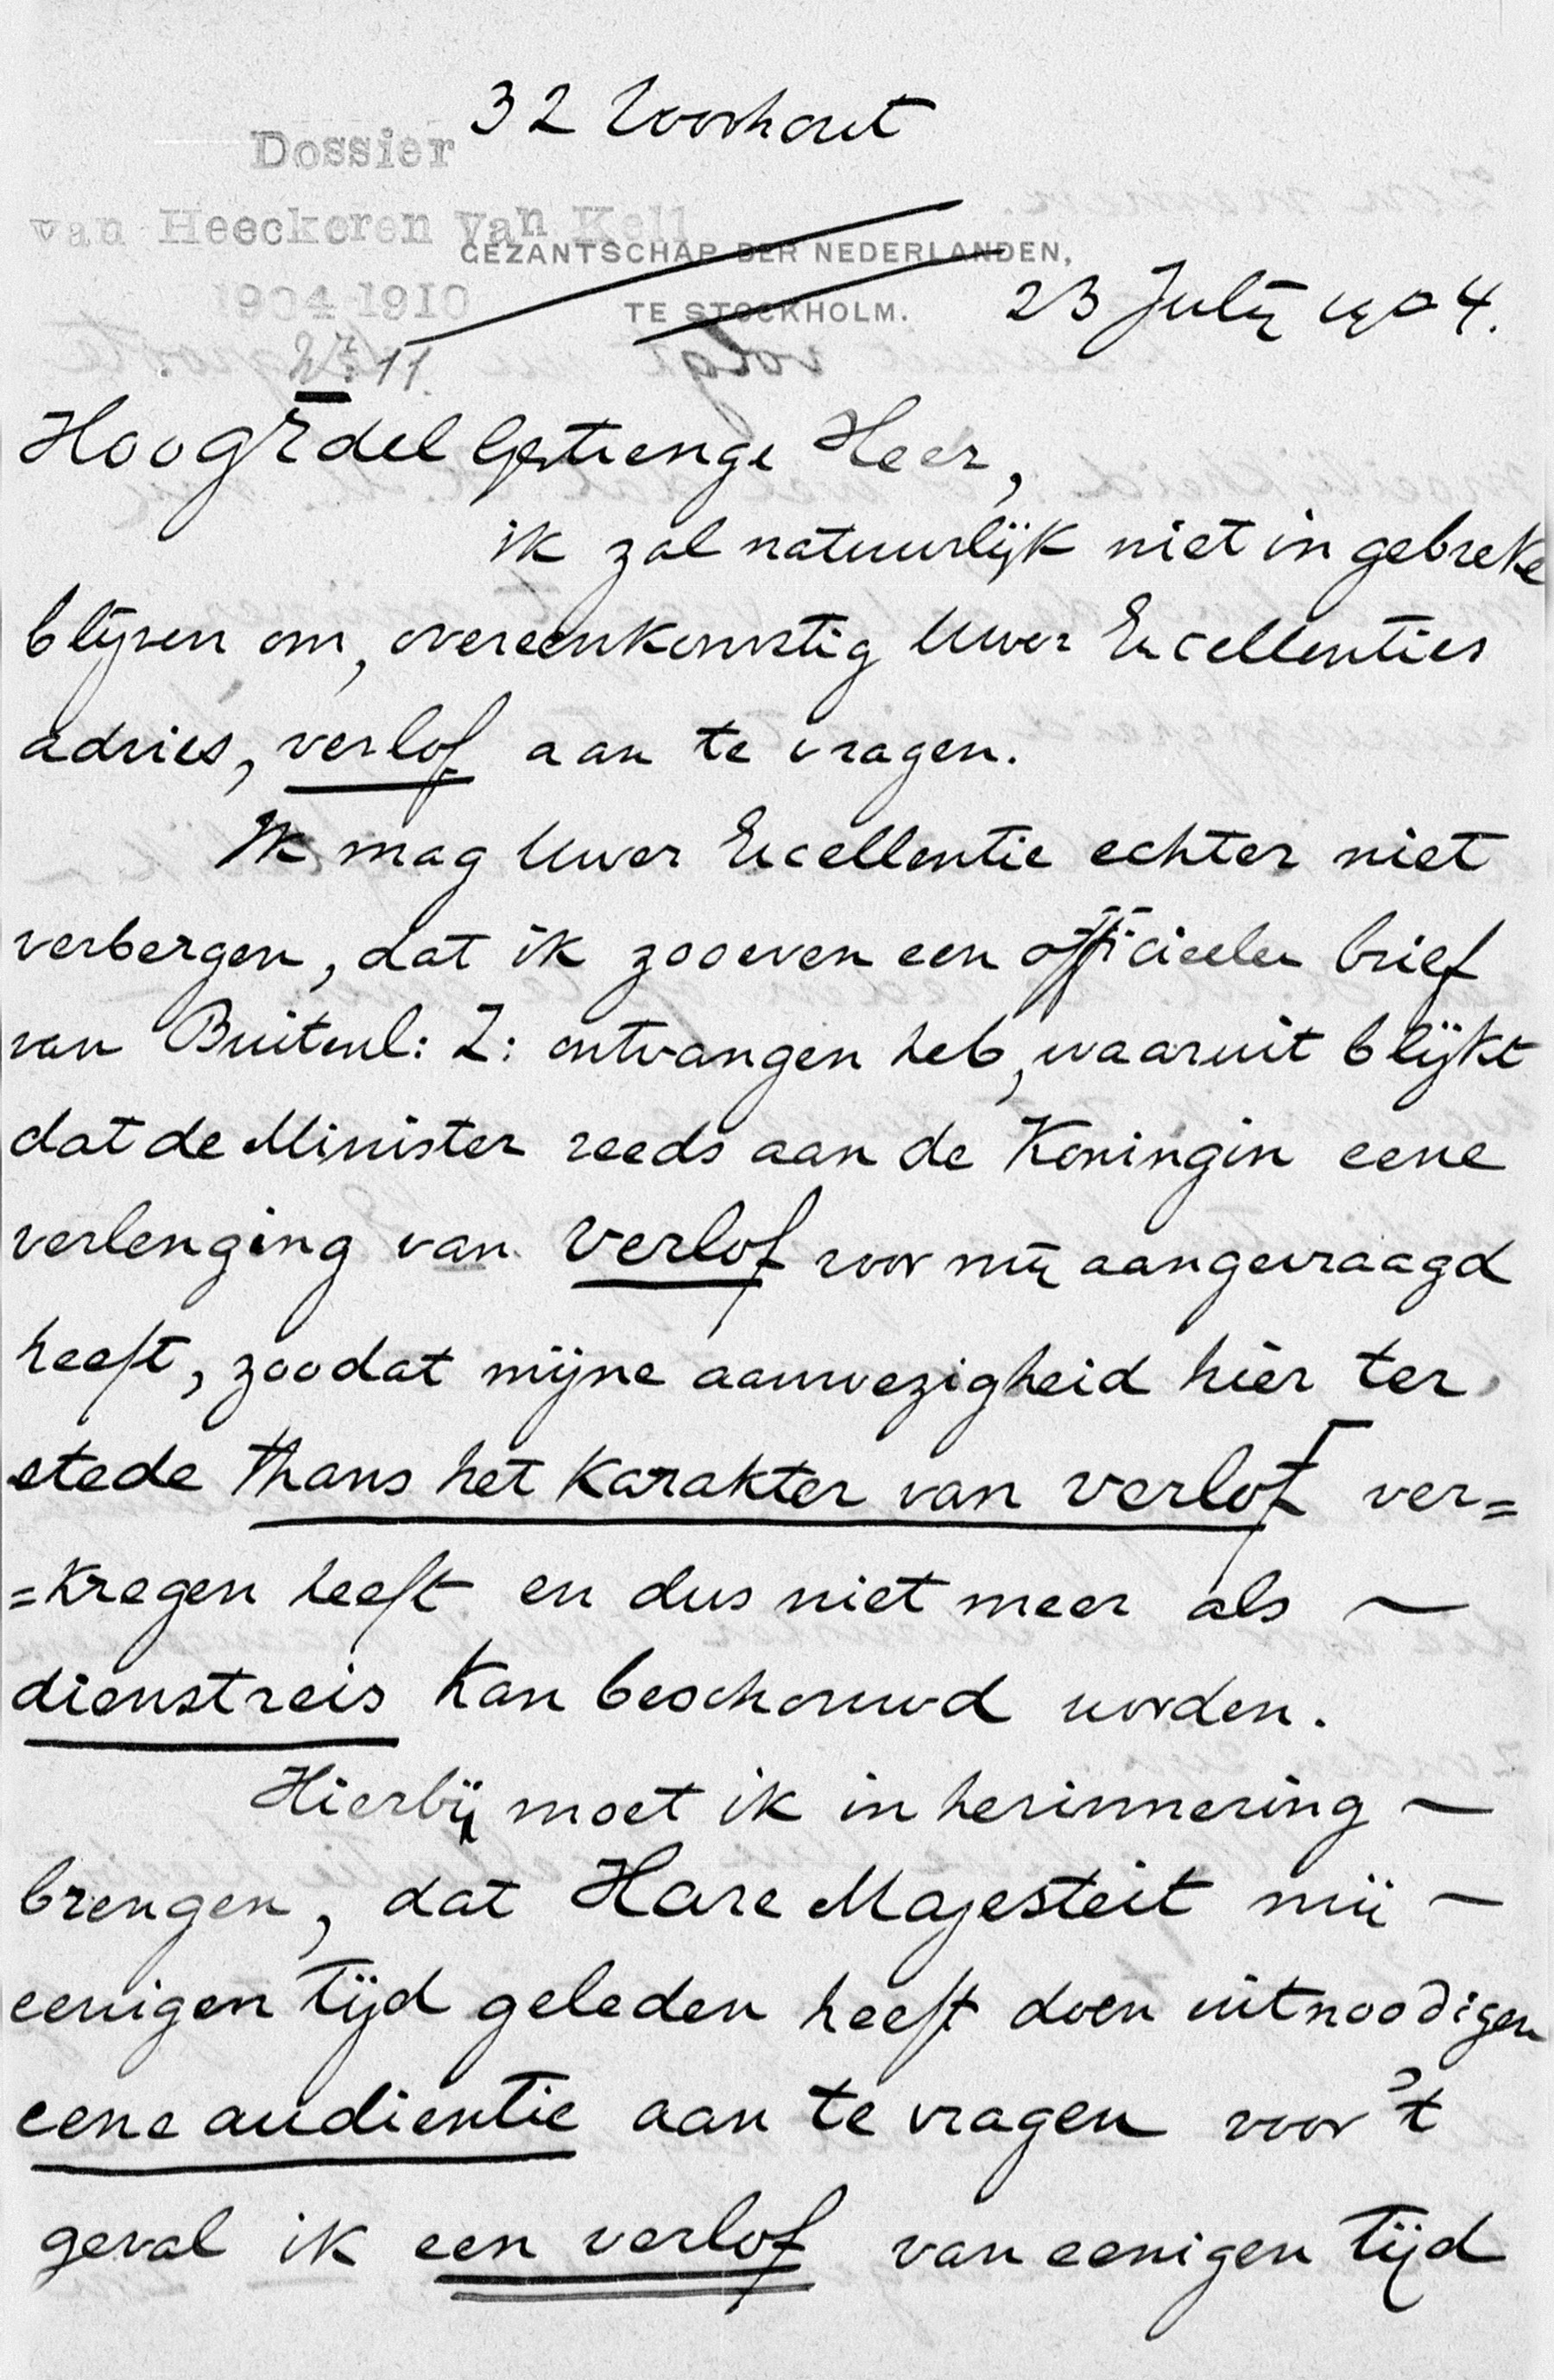 32 Voorhout
Dossier
van Heeckeren van Kell
GEZANTSCHAP DER NEDERLANDEN,
1904-1910
TE STOCKHOLM.
23 July 1904.
11.
HoogEdelGestrenge Heer,
ik zal natuurlijk niet in gebreke
blijven om, overeenkomstig Uwer Excellenties
advies, verlof aan te vragen.
Ik mag Uwer Excellentie echter niet
verbergen, dat ik zooeven een officieelen brief
van Buitenl: Z: ontvangen heb, waaruit blijkt
dat de Minister reeds aan de Koningin eene
verlenging van verlof voor mij aangevraagd
heeft, zoodat mijne aanwezigheid hier ter
stede thans het karakter van verlof ver=
=kregen heeft en dus niet meer als —
dienstreis kan beschouwd worden.
Hierbij moet ik in herinnering —
brengen, dat Hare Majesteit mij —
eenigen tijd geleden heeft doen uitnoodigen
eene audientie aan te vragen voor 't
geval ik een verlof van eenigen tijd